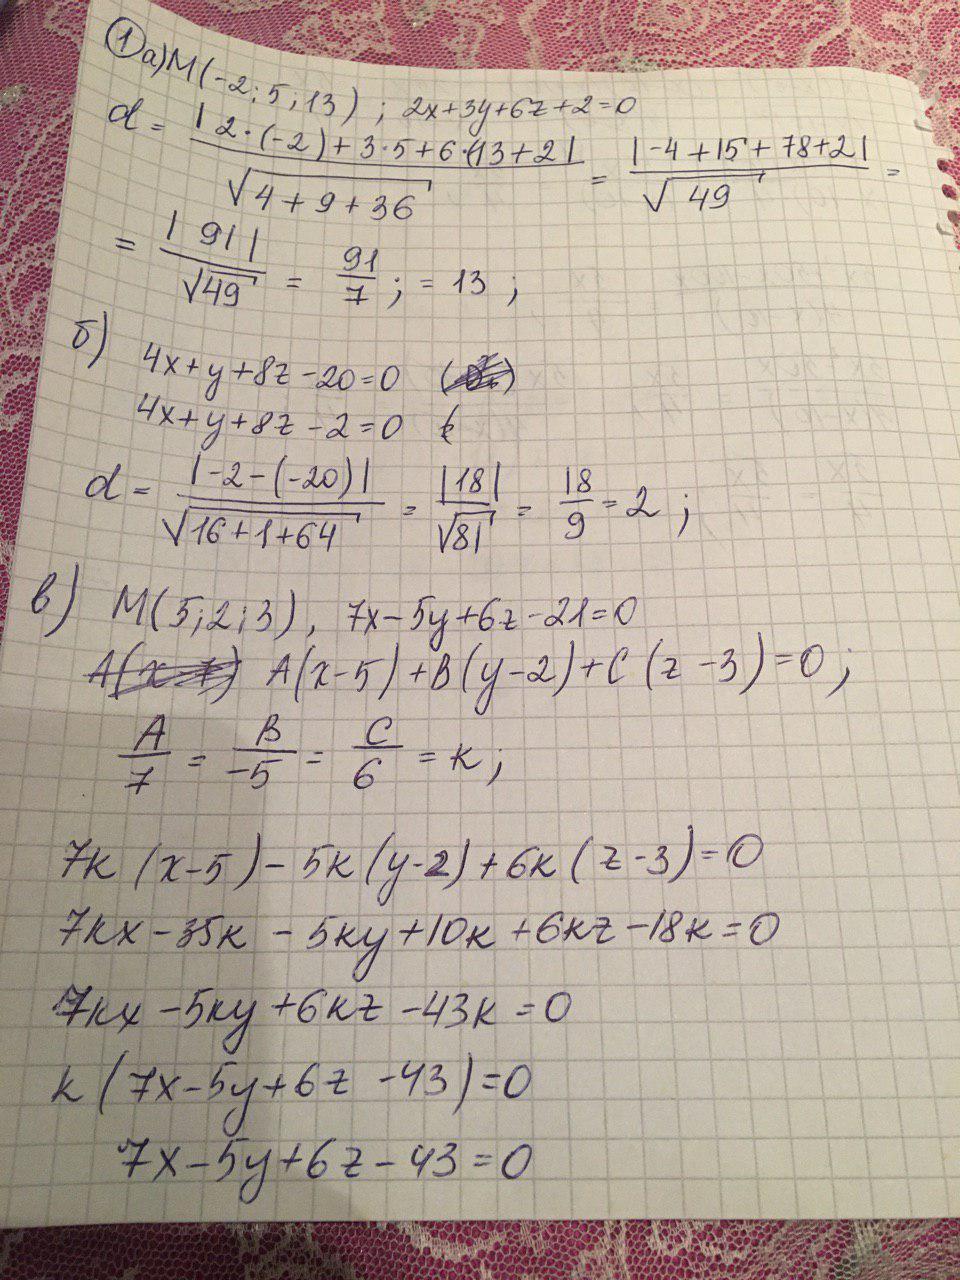 1 а) M(-2; 5; 13) ; 2x+3y+6z+2=0
d = |2·(-2)+3·5+6·13+2| / √(4+9+36) = |-4+15+78+2| / √49 =
= |91| / √49 = 91/7 ; = 13 ;
б)
4x+y+8z-20=0
4x+y+8z-2=0
d = |-2-(-20)| / √(16+1+64) = |18| / √81 = 18/9 = 2 ;
в) M(5;2;3), 7x-5y+6z-21=0
A(x-5)+B(y-2)+C(z-3)=0;
A/7 = B/-5 = C/6 = k;
7k(x-5)-5k(y-2)+6k(z-3)=0
7kx-35k-5ky+10k+6kz-18k=0
7kx-5ky+6kz-43k=0
k(7x-5y+6z-43)=0
7x-5y+6z-43=0